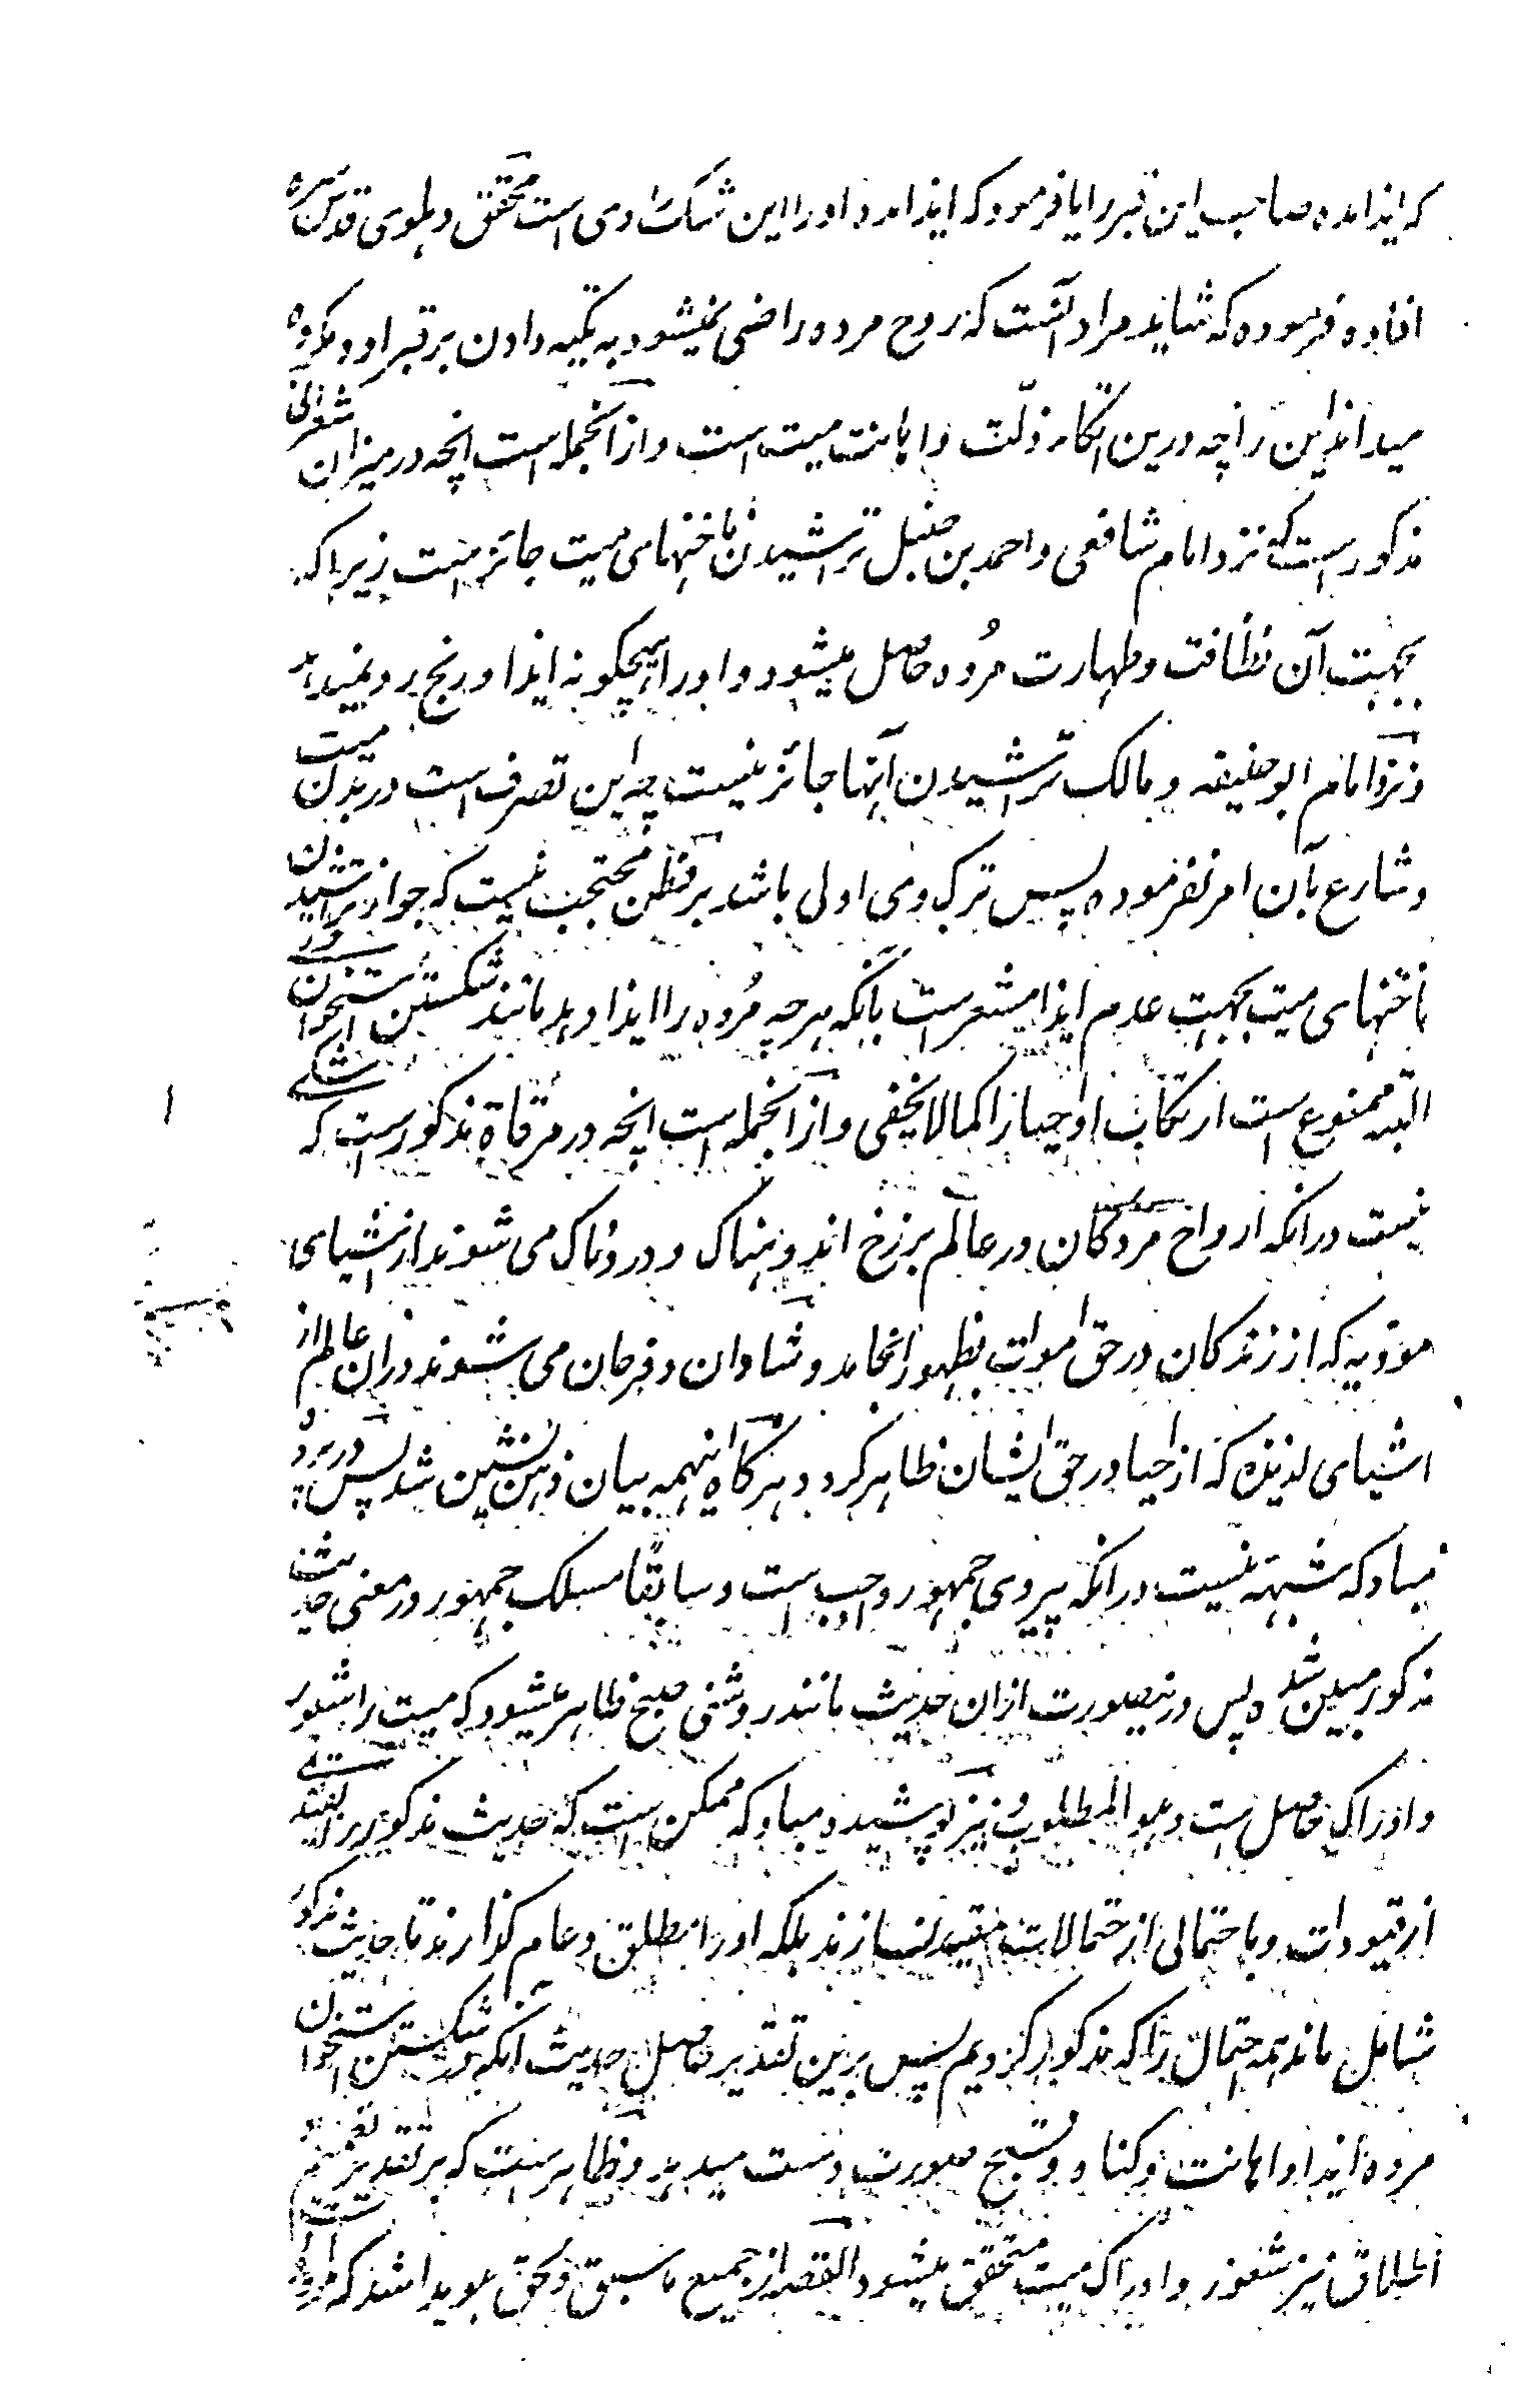 که ایذا مده صاحب این قبر را یا فرمود که ایذا مده او را این شک راوی است محقق دهلوی قدس سره
افاده فرموده که شاید مراد آنست که روح مرده راضی نمیشود به تکیه دادن بر قبر او و مکروه
میداند این را چه درین اتکاء ذلّت و اهانت میت است و از انجمله است انچه در میزان شعرانی
مذکور است که نزد امام شافعی و احمد بن حنبل تراشیدن ناخنهای میت جائز است زیرا که
بجهت آن نظافت و طهارت مُرده حاصل میشود و او را هیچگونه ایذا و رنج رو نمیدهد
و نزد امام ابو حنیفه و مالک تراشیدن آنها جائز نیست چه این تصرف است در بدن میت
و شارع بآن امر نفرموده پس ترک وی اولی باشد بر فطن محتجب نیست که جواز تراشیدن
ناخنهای میت بجهت عدم ایذا مشعر است بانکه هرچه مُرده را ایذا دهد مانند شکستن استخوان وی
البته ممنوع است ارتکاب او احیا را کما لا یخفی و از انجمله است انچه در مرقاة مذکور است که شکی
نیست درانکه ارواح مردگان در عالم برزخ اندوهناک و دردناک می شوند از اشیای
موذیه که از زندگان در حق اموات بظهور انجامد و شادان و فرحان می شوند دران عالم از
اشیای لذیذه که از احیا در حق ایشان ظاهر گردد و هرگاه اینهمه بیان ذهن نشین شد پس
مباد که شبهه نیست درانکه پیروی جمهور واجب است و سابقا مسلک جمهور در معنی حدیث
مذکور مبین شده پس درینصورت ازان حدیث مانند روشنی صبح ظاهر میشود که میت را شعور
و ادراکی حاصل است و هو المطلوب و نیز پوشیده مباد که ممکن است که حدیث مذکور را بقیدی
از قیودات و با احتمالی از احتمالات مقید نسازند بلکه او را مطلق و عام گذارند تا حدیث مذکور
شامل ماند همه احتمالات را که مذکور کردیم پس برین تقدیر حاصل حدیث آنکه در شکستن استخوان
مرده ایذا و اهانت و گناه و قبح صورت دست میدهد و ظاهر است که بر تقدیر تعمیم و
اطلاق نیز شعور و ادراک میت متحقق میشود القصه از جمیع ما سبق و لحق هویدا شد که